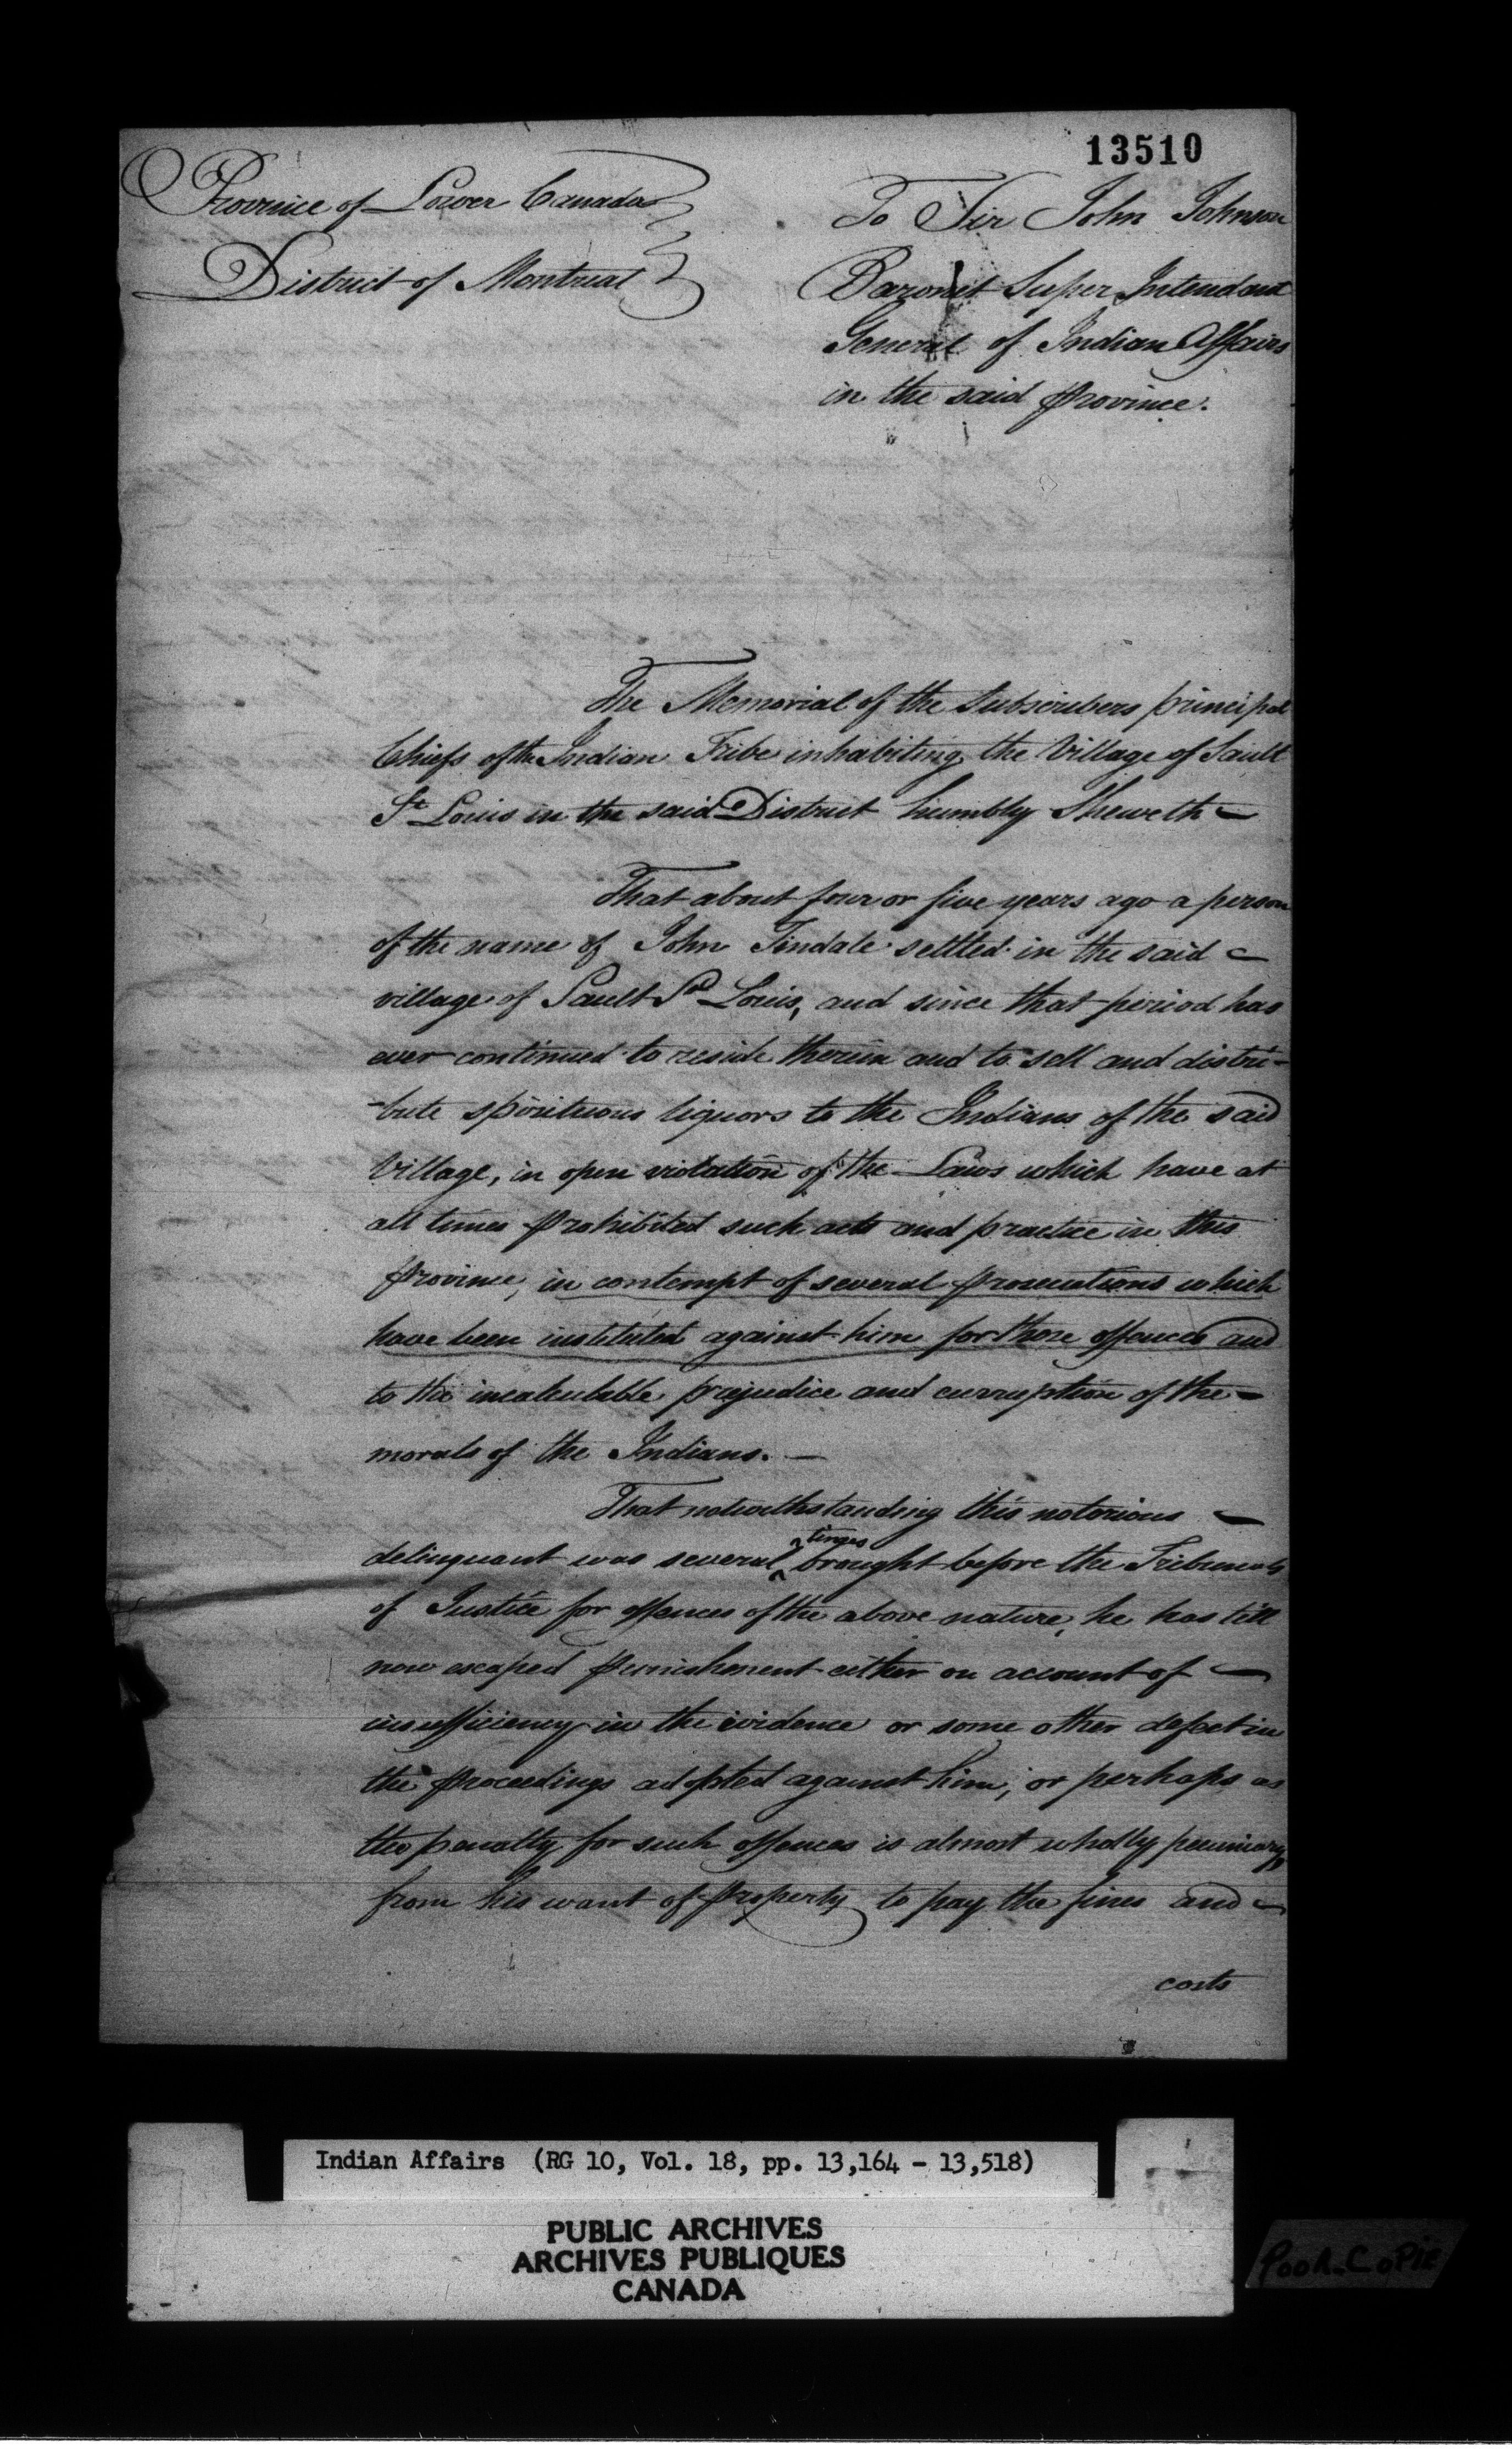 13510
Province of Lower Canada
District of Montreal
To Sir John Johnson
Baronet Super Intendant
General of Indian Affairs
in the said Province.
The Memorial of the Subscribers principal
Chiefs of the Indian Tribe inhabiting the Village of Sault
St Louis in the said District humbly Sheweth —
That about four or five years ago a person
of the name of John Tindale settled in the said —
village of Sault St Louis, and since that period has
ever continued to reside therein and to sell and distri-
-bute spirituous liquors to the Indians of the said
Village, in open violation of the Laws which have at
all times prohibited such acts and practice in this
Province, in contempt of several prosecutions which
have been instituted against him for those offences and
to the incalculable prejudice and curruption of the —
morals of the Indians. —
That notwithstanding this notorious —
delinquant was several times brought before the Tribunals
of Justice for offences of the above nature, he has till
now escaped punishment either on account of —
insufficiency in the evidence or some other defect in
the proceedings adopted against him, or perhaps as
the penalty for such offences is almost wholly pecuniary,
from his want of property to pay the fines and —
costs
Indian Affairs (RG 10, Vol. 18, pp. 13,164 - 13,518)
PUBLIC ARCHIVES
ARCHIVES PUBLIQUES
CANADA
POOR COPIE